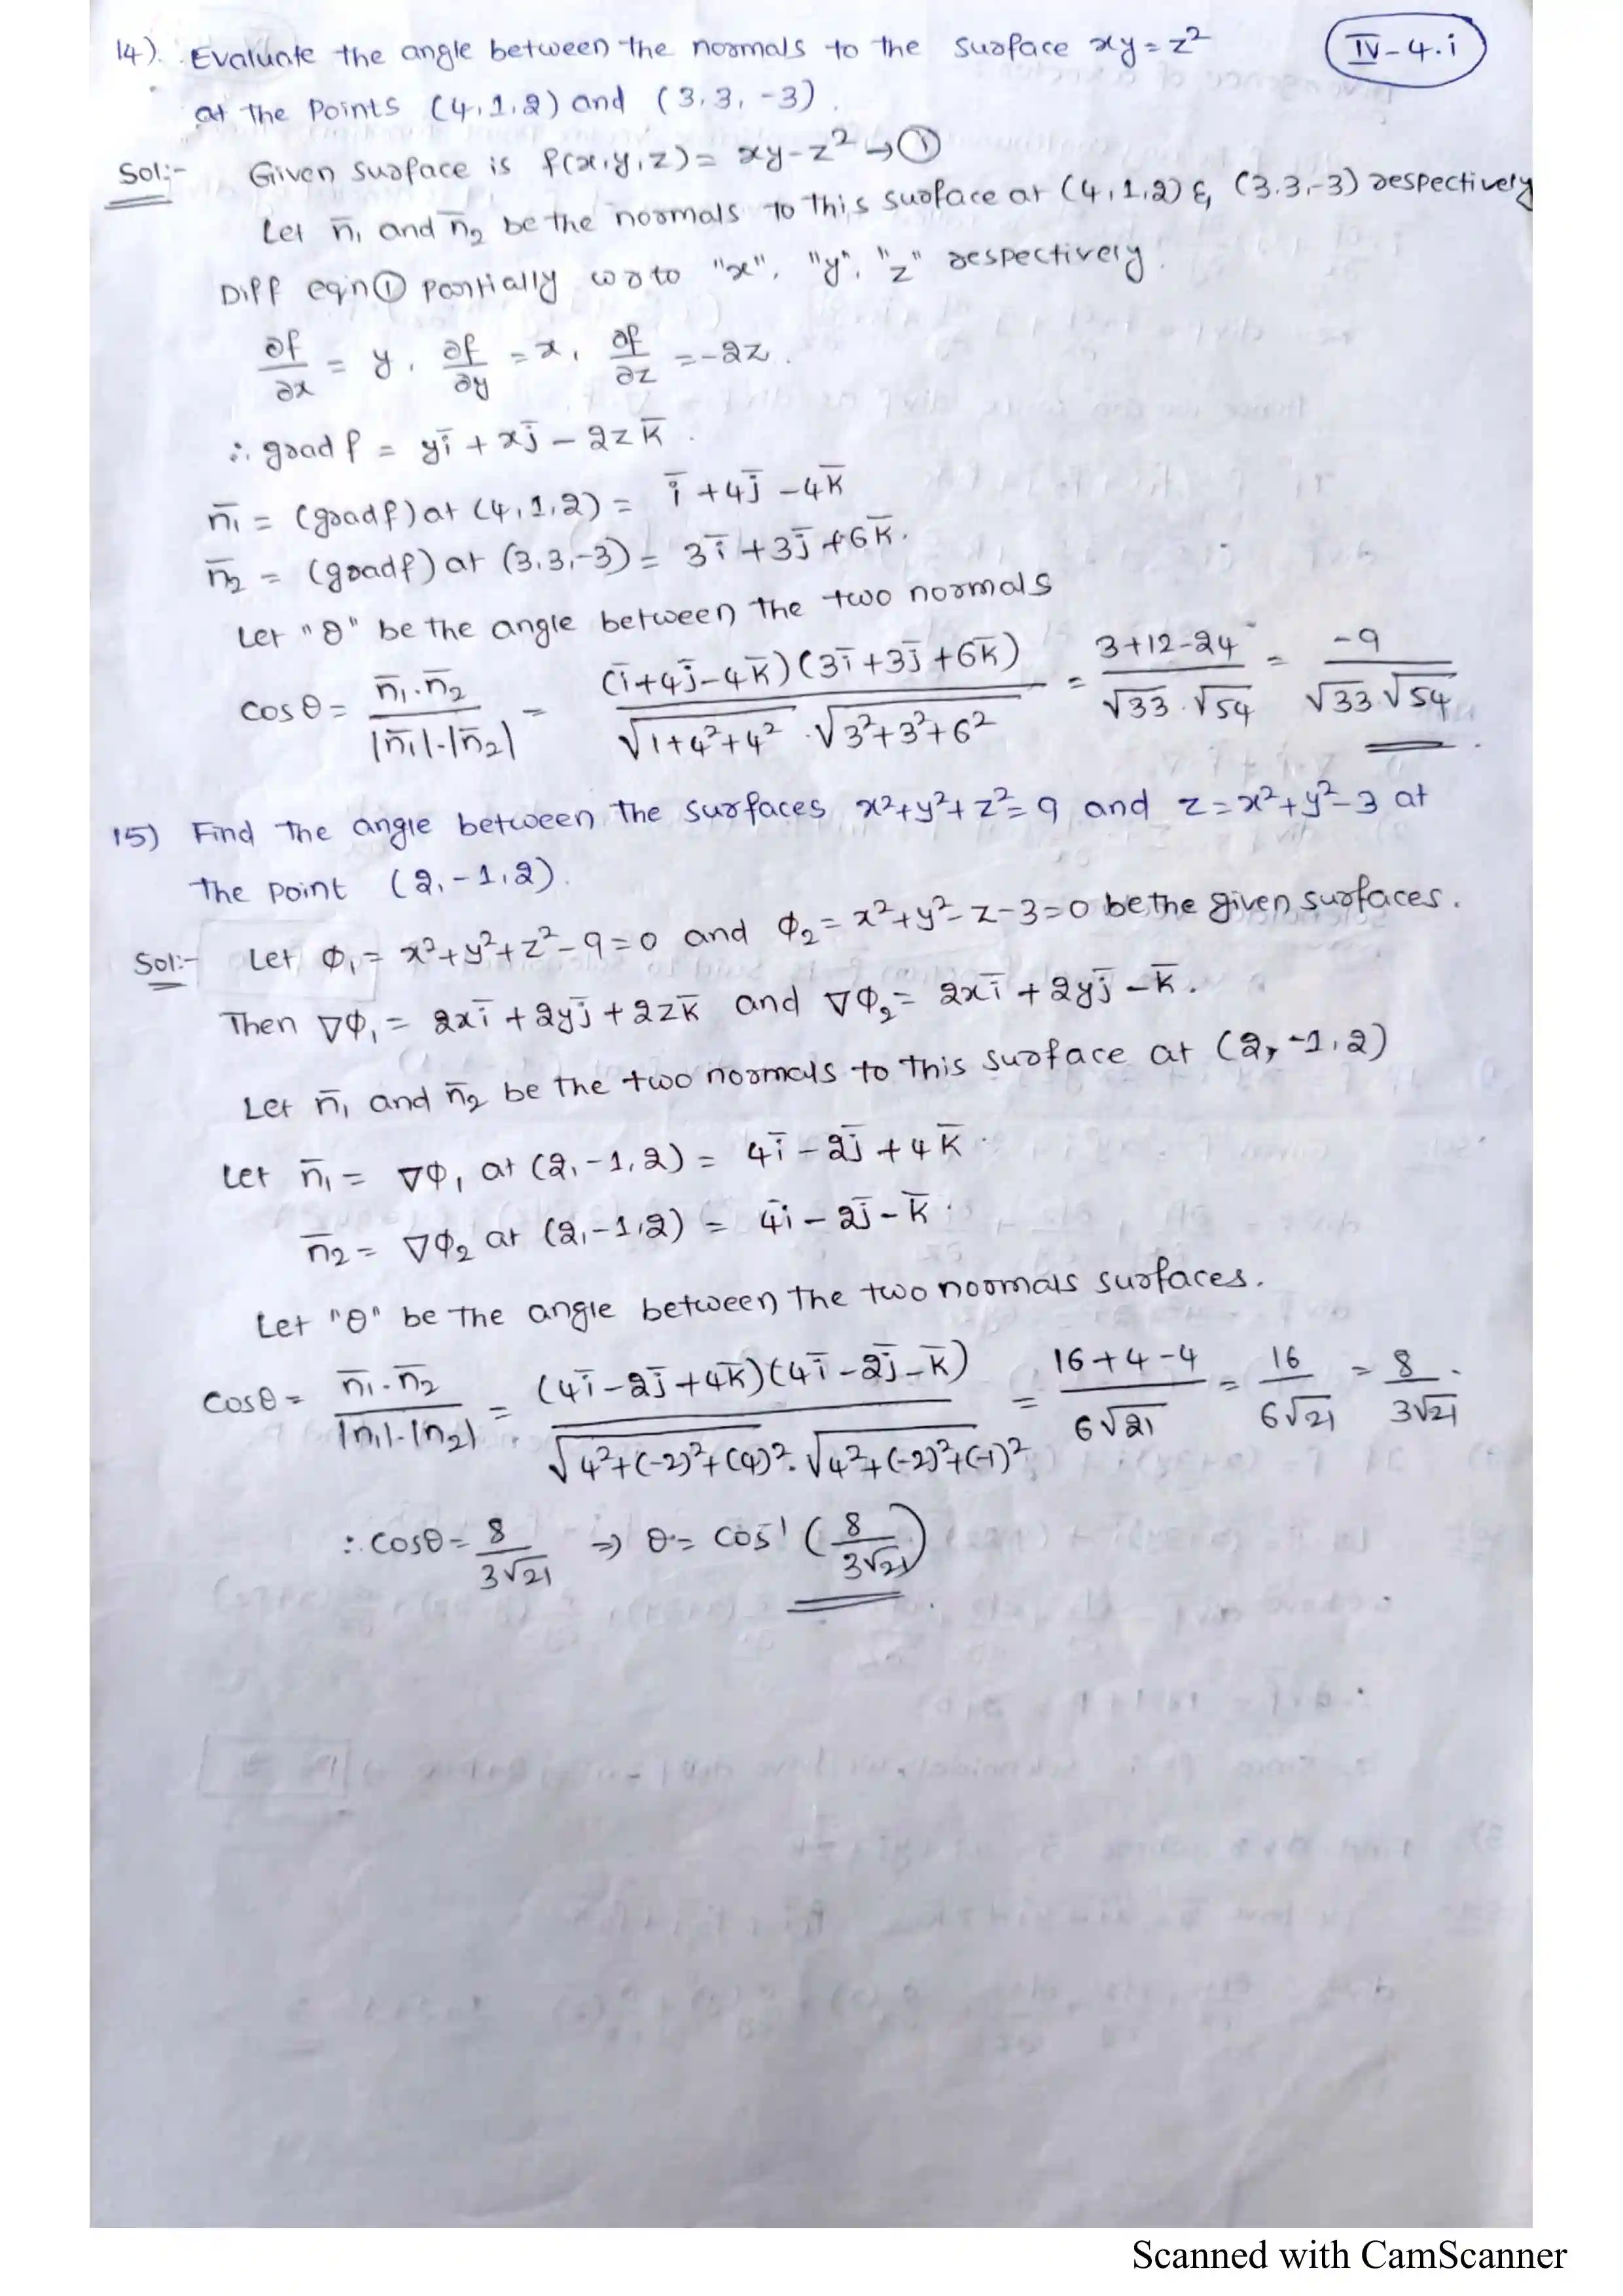 14). Evaluate the angle between the normals to the surface xy = z²
IV-4.i
at the points (4,1,2) and (3,3,-3).
Sol:- Given surface is f(x,y,z) = xy-z² → ①
Let n̄₁ and n̄₂ be the normals to this surface at (4,1,2) & (3,3,-3) respectively
Diff eqn① partially w.r.to "x", "y", "z" respectively.
∂f/∂x = y, ∂f/∂y = x, ∂f/∂z = -2z.
∴ grad f = yī + xj̄ - 2zk̄.
n̄₁ = (grad f) at (4,1,2) = ī + 4j̄ - 4k̄
n̄₂ = (grad f) at (3,3,-3) = 3ī + 3j̄ + 6k̄.
Let "θ" be the angle between the two normals
cosθ = n̄₁.n̄₂ / |n̄₁|.|n̄₂| = (ī+4j̄-4k̄)(3ī+3j̄+6k̄) / √1+4²+4² . √3²+3²+6² = 3+12-24 / √33 . √54 = -9 / √33 . √54.
15) Find the angle between the surfaces x²+y²+z²=9 and z=x²+y²-3 at
the point (2,-1,2).
Sol:- Let Φ₁ = x²+y²+z²-9=0 and Φ₂ = x²+y²-z-3=0 be the given surfaces.
Then ∇Φ₁ = 2xī + 2yj̄ + 2zk̄ and ∇Φ₂ = 2xī + 2yj̄ - k̄.
Let n̄₁ and n̄₂ be the two normals to this surface at (2,-1,2)
Let n̄₁ = ∇Φ₁ at (2,-1,2) = 4ī - 2j̄ + 4k̄.
n̄₂ = ∇Φ₂ at (2,-1,2) = 4ī - 2j̄ - k̄.
Let "θ" be the angle between the two normals surfaces.
cosθ = n̄₁.n̄₂ / |n₁|.|n₂| = (4ī-2j̄+4k̄)(4ī-2j̄-k̄) / √4²+(-2)²+(4)² . √4²+(-2)²+(-1)² = 16+4-4 / 6√21 = 16 / 6√21 = 8 / 3√21.
∴ cosθ = 8 / 3√21 ⇒ θ = cos⁻¹ (8 / 3√21).
Scanned with CamScanner